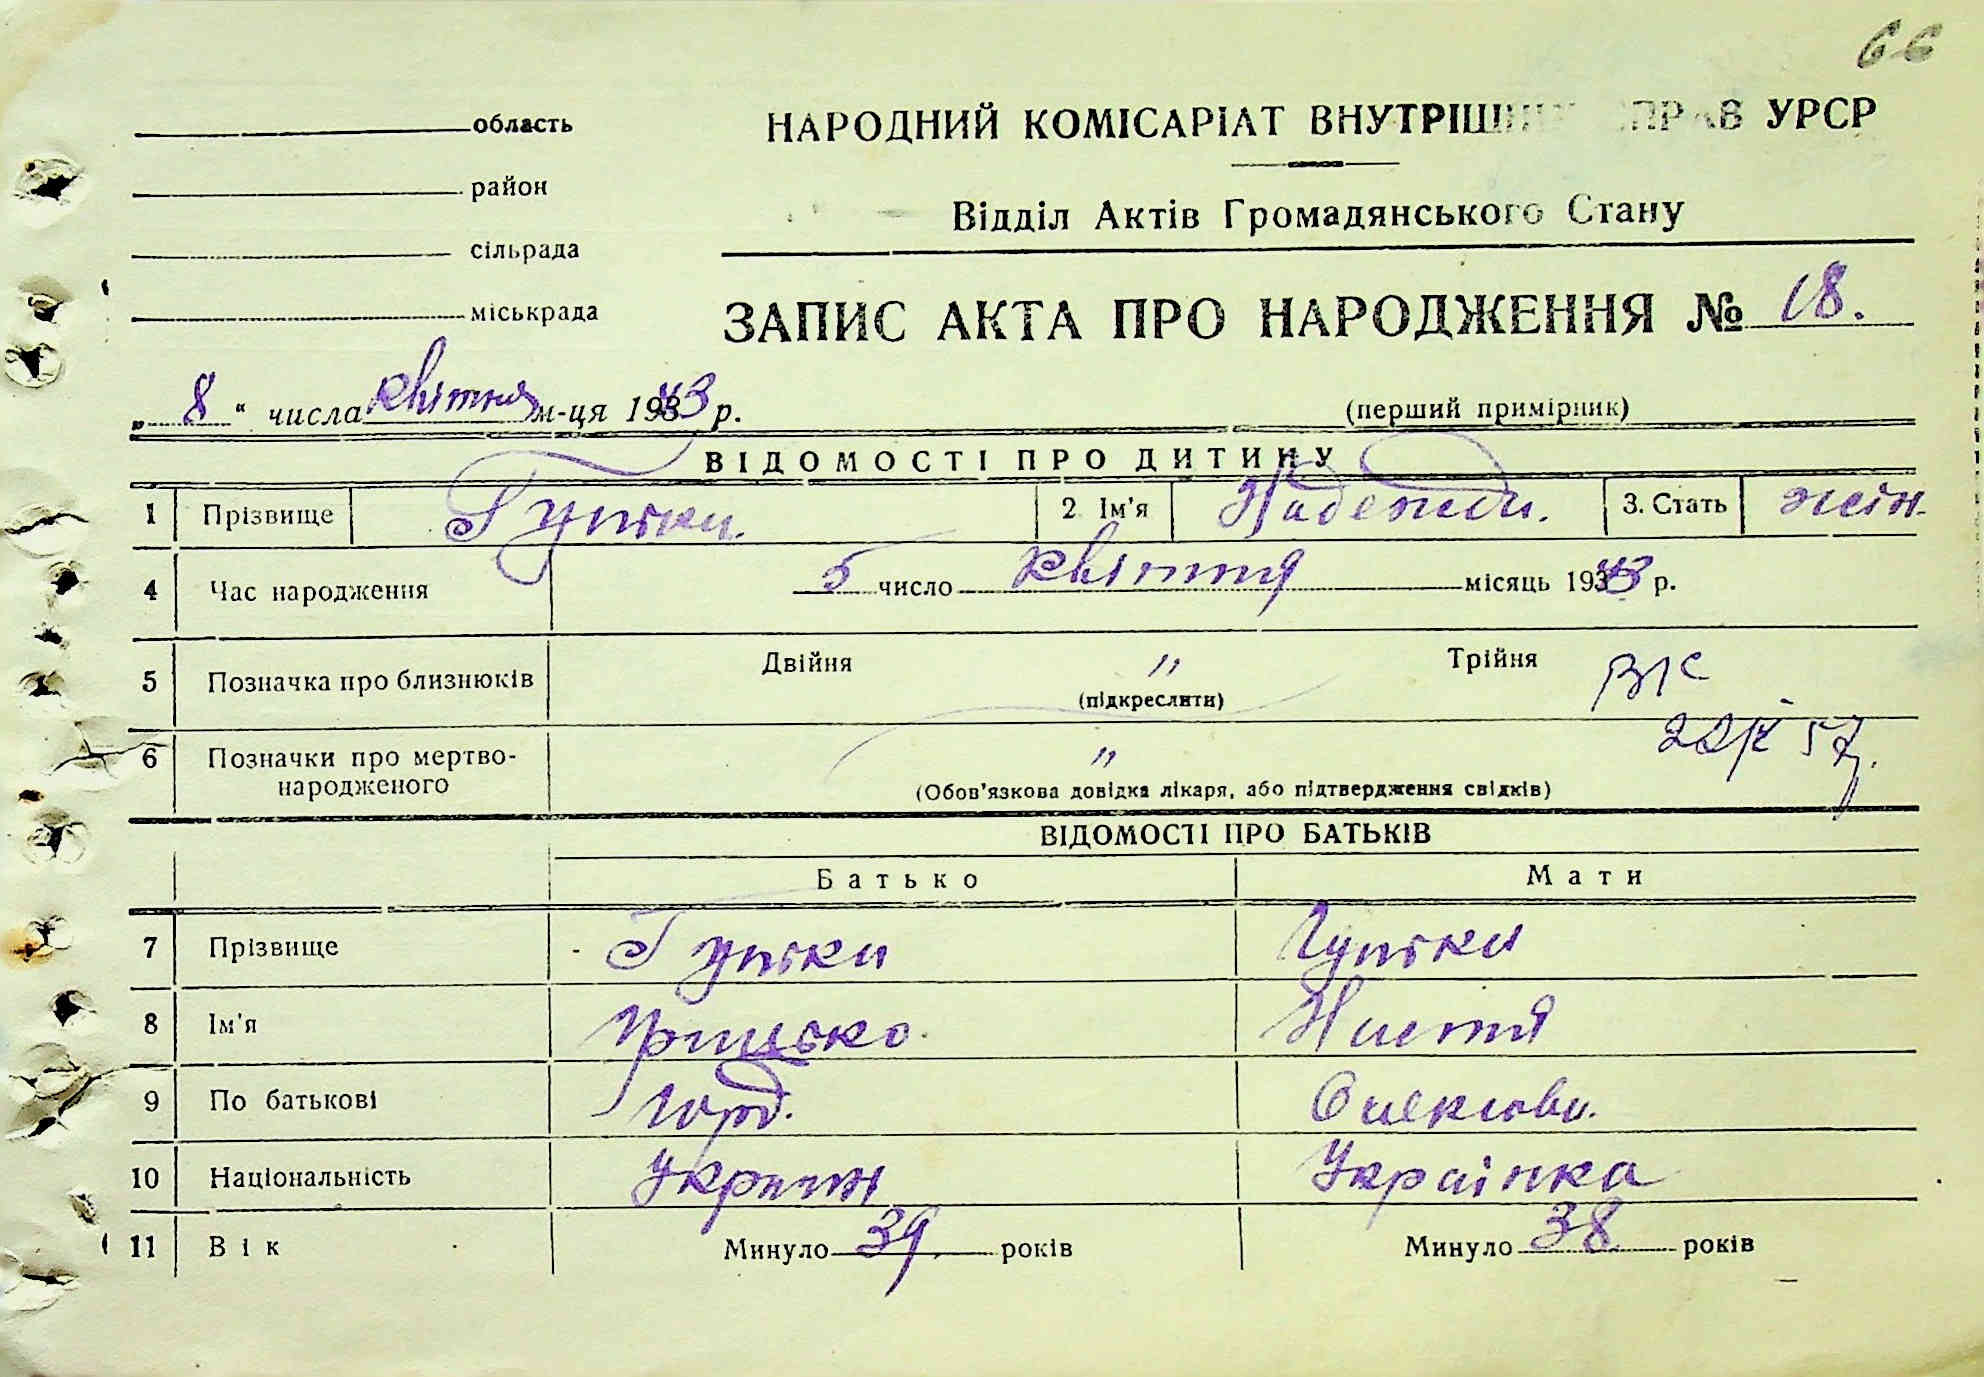 66
область
НАРОДНИЙ КОМІСАРІАТ ВНУТРІШНІХ СПРАВ УРСР
район
Відділ Актів Громадянського Стану
сільрада
міськрада
ЗАПИС АКТА ПРО НАРОДЖЕННЯ № 18.
„ 8 " числа квітня м-ця 1943 р.
(перший примірник)
ВІДОМОСТІ ПРО ДИТИНУ
1 Прізвище Гупska 2 Ім'я Надежда. 3. Стать жін.
4 Час народження 5 число квітня місяць 1943 р.
5 Позначка про близнюків Двійня " Трійня
(підкреслити)
6 Позначки про мертво-
народженого "
(Обов'язкова довідка лікаря, або підтвердження свідків)
ВІДОМОСТІ ПРО БАТЬКІВ
Батько Мати
7 Прізвище
8 Ім'я Грицько Настя
9 По батькові Горд.
10 Національність Україн Українка
11 Вік Минуло 39 років Минуло 38 років